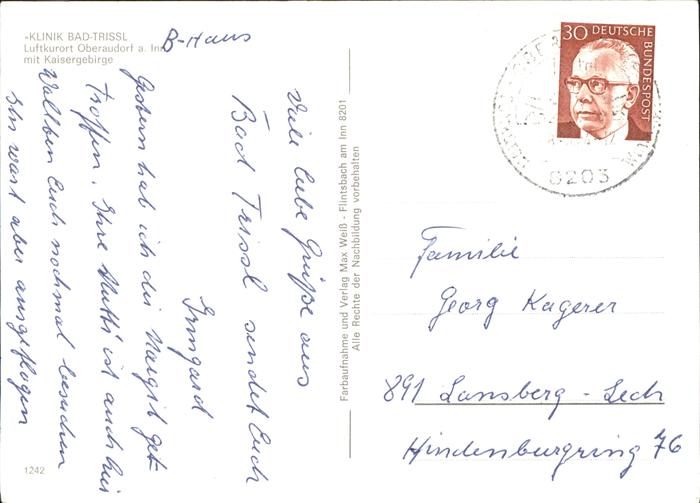 »KLINIK BAD-TRISSL
Luftkurort Oberaudorf a. Inn
mit Kaisergebirge
B-Haus
Viele liebe Grüße aus
Bad Trissl sendet Euch
Irmgard
Gestern hab ich die Margit get-
troffen. Ihre Mutti ist auch hier
Wollten Euch nochmal besuchen
Ihr wart aber ausgeflogen
1242
Farbaufnahme und Verlag Max Weiß - Flintsbach am Inn 8201
Alle Rechte der Nachbildung vorbehalten
30 DEUTSCHE
BUNDESPOST
8203
Familie
Georg Kagerer
891 Lansberg - Lech
Hindenburgring 76